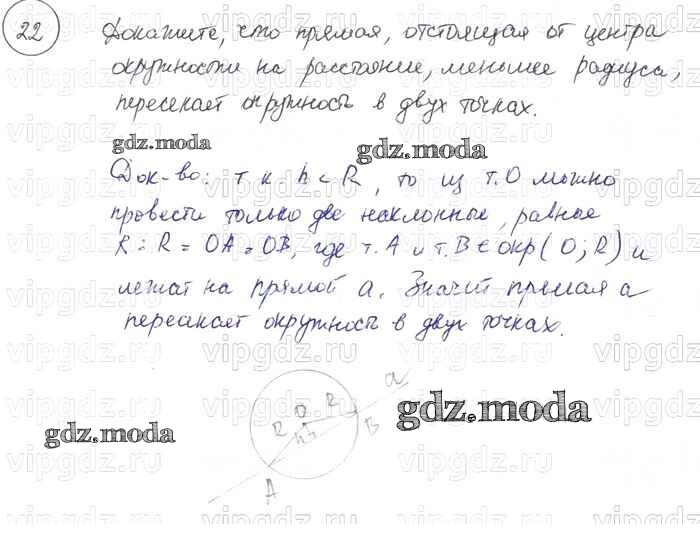 22 Докажите, что прямая, отстоящая от центра
окружности на расстояние, меньшее радиуса,
пересекает окружность в двух точках.
gdz.moda gdz.moda
Док-во: т к h < R, то из т.О можно
провести только две наклонные, равные
R: R = OA = OB, где т.А и т.В ∈ окр(О; R) и
лежат на прямой а. Значит прямая а
пересекает окружность в двух точках.
a
R O R
h
B
A
gdz.moda gdz.moda
vipgdz.ru